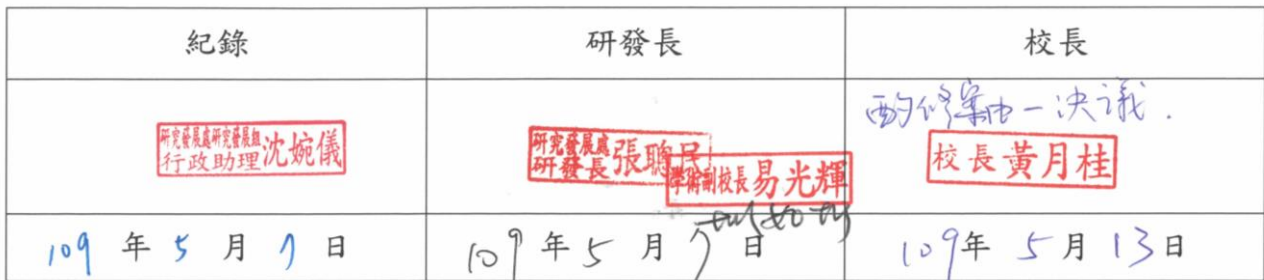 紀錄 研發長 校長
酌修案由一決議.
研究發展處研究發展組
行政助理沈婉儀
研究發展處
研發長張聰民
學術副校長易光輝
校長黃月桂
109年5月7日 109年5月7日 109年5月13日